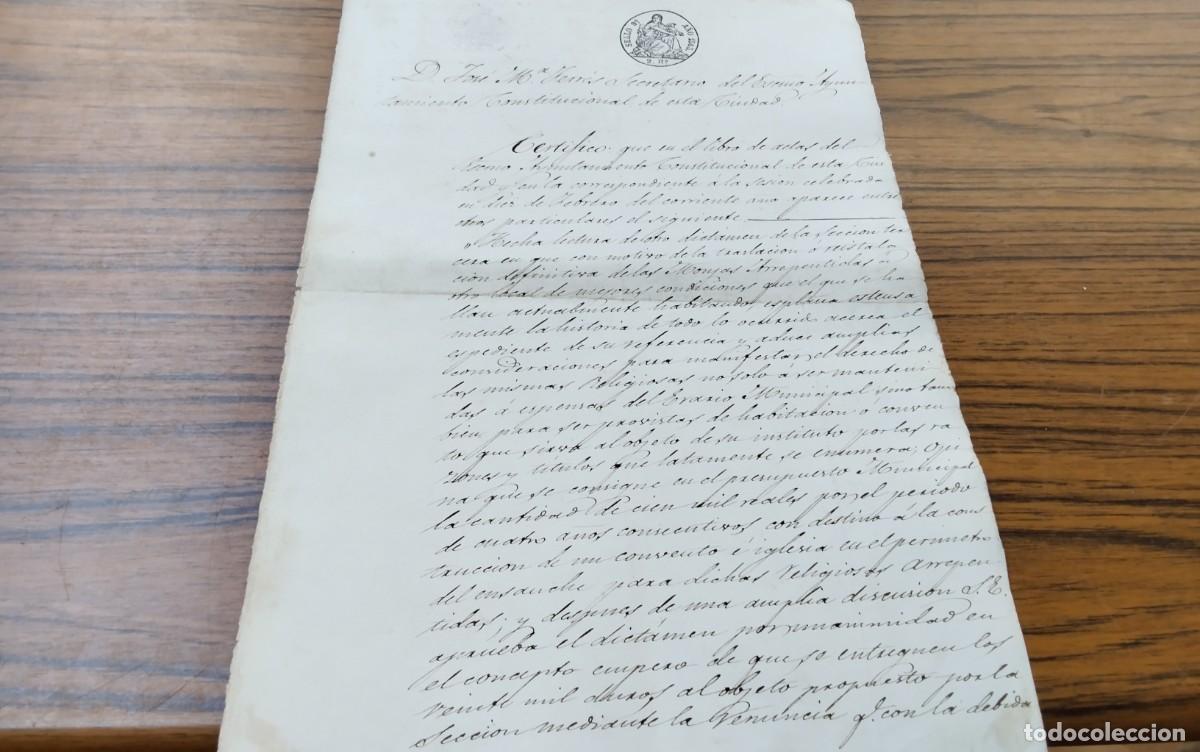 SELLO 9º AÑO 186
2 Rs
D. José Mª Ferris Secretario del Exmo Ayun-
tamiento Constitucional de esta Ciudad
Certifico: que en el libro de actas del
Exmo Ayuntamiento Constitucional de esta Ciu-
dad y en la correspondiente á la sesion celebrada
en diez de Febrero del corriente ano aparece entre
otros particulares el siguiente
"Hecha lectura de otro dictámen de la Seccion ter
cera en que con motivo de la traslacion ó reistala
cion definitiva de las Monjas Arrepentidas á
otro local de mejores condiciones que el que se ha
llan actualmente habitando, esplana estensa
mente la historia de todo lo ocurrido acerca el
espediente de su referencia y aduce amplias
consideraciones para manifestar el derecho de
las mismas Religiosas no solo á ser manteni
das á espensas del Erario Municipal sino tam
bien para ser provistas de habitacion ó conven
to que sirva al objeto de su instituto por las ra
zones y titulos que latamente se enumera; Opi
na: que se consigne en el presupuesto Municipal
la cantidad de cien mil reales por el periodo
de cuatro años consecutivos con destino á la cons
truccion de un convento é iglesia en el perimetro
del ensanche para dichas Religiosas Arrepen
tidas; y despues de una amplia discusion S. E.
aprueba el dictámen por unanimidad en
el concepto empero de que se entreguen los
veinte mil duros al objeto propuesto por la
Seccion mediante la renuncia q.e con la debida
todocoleccion